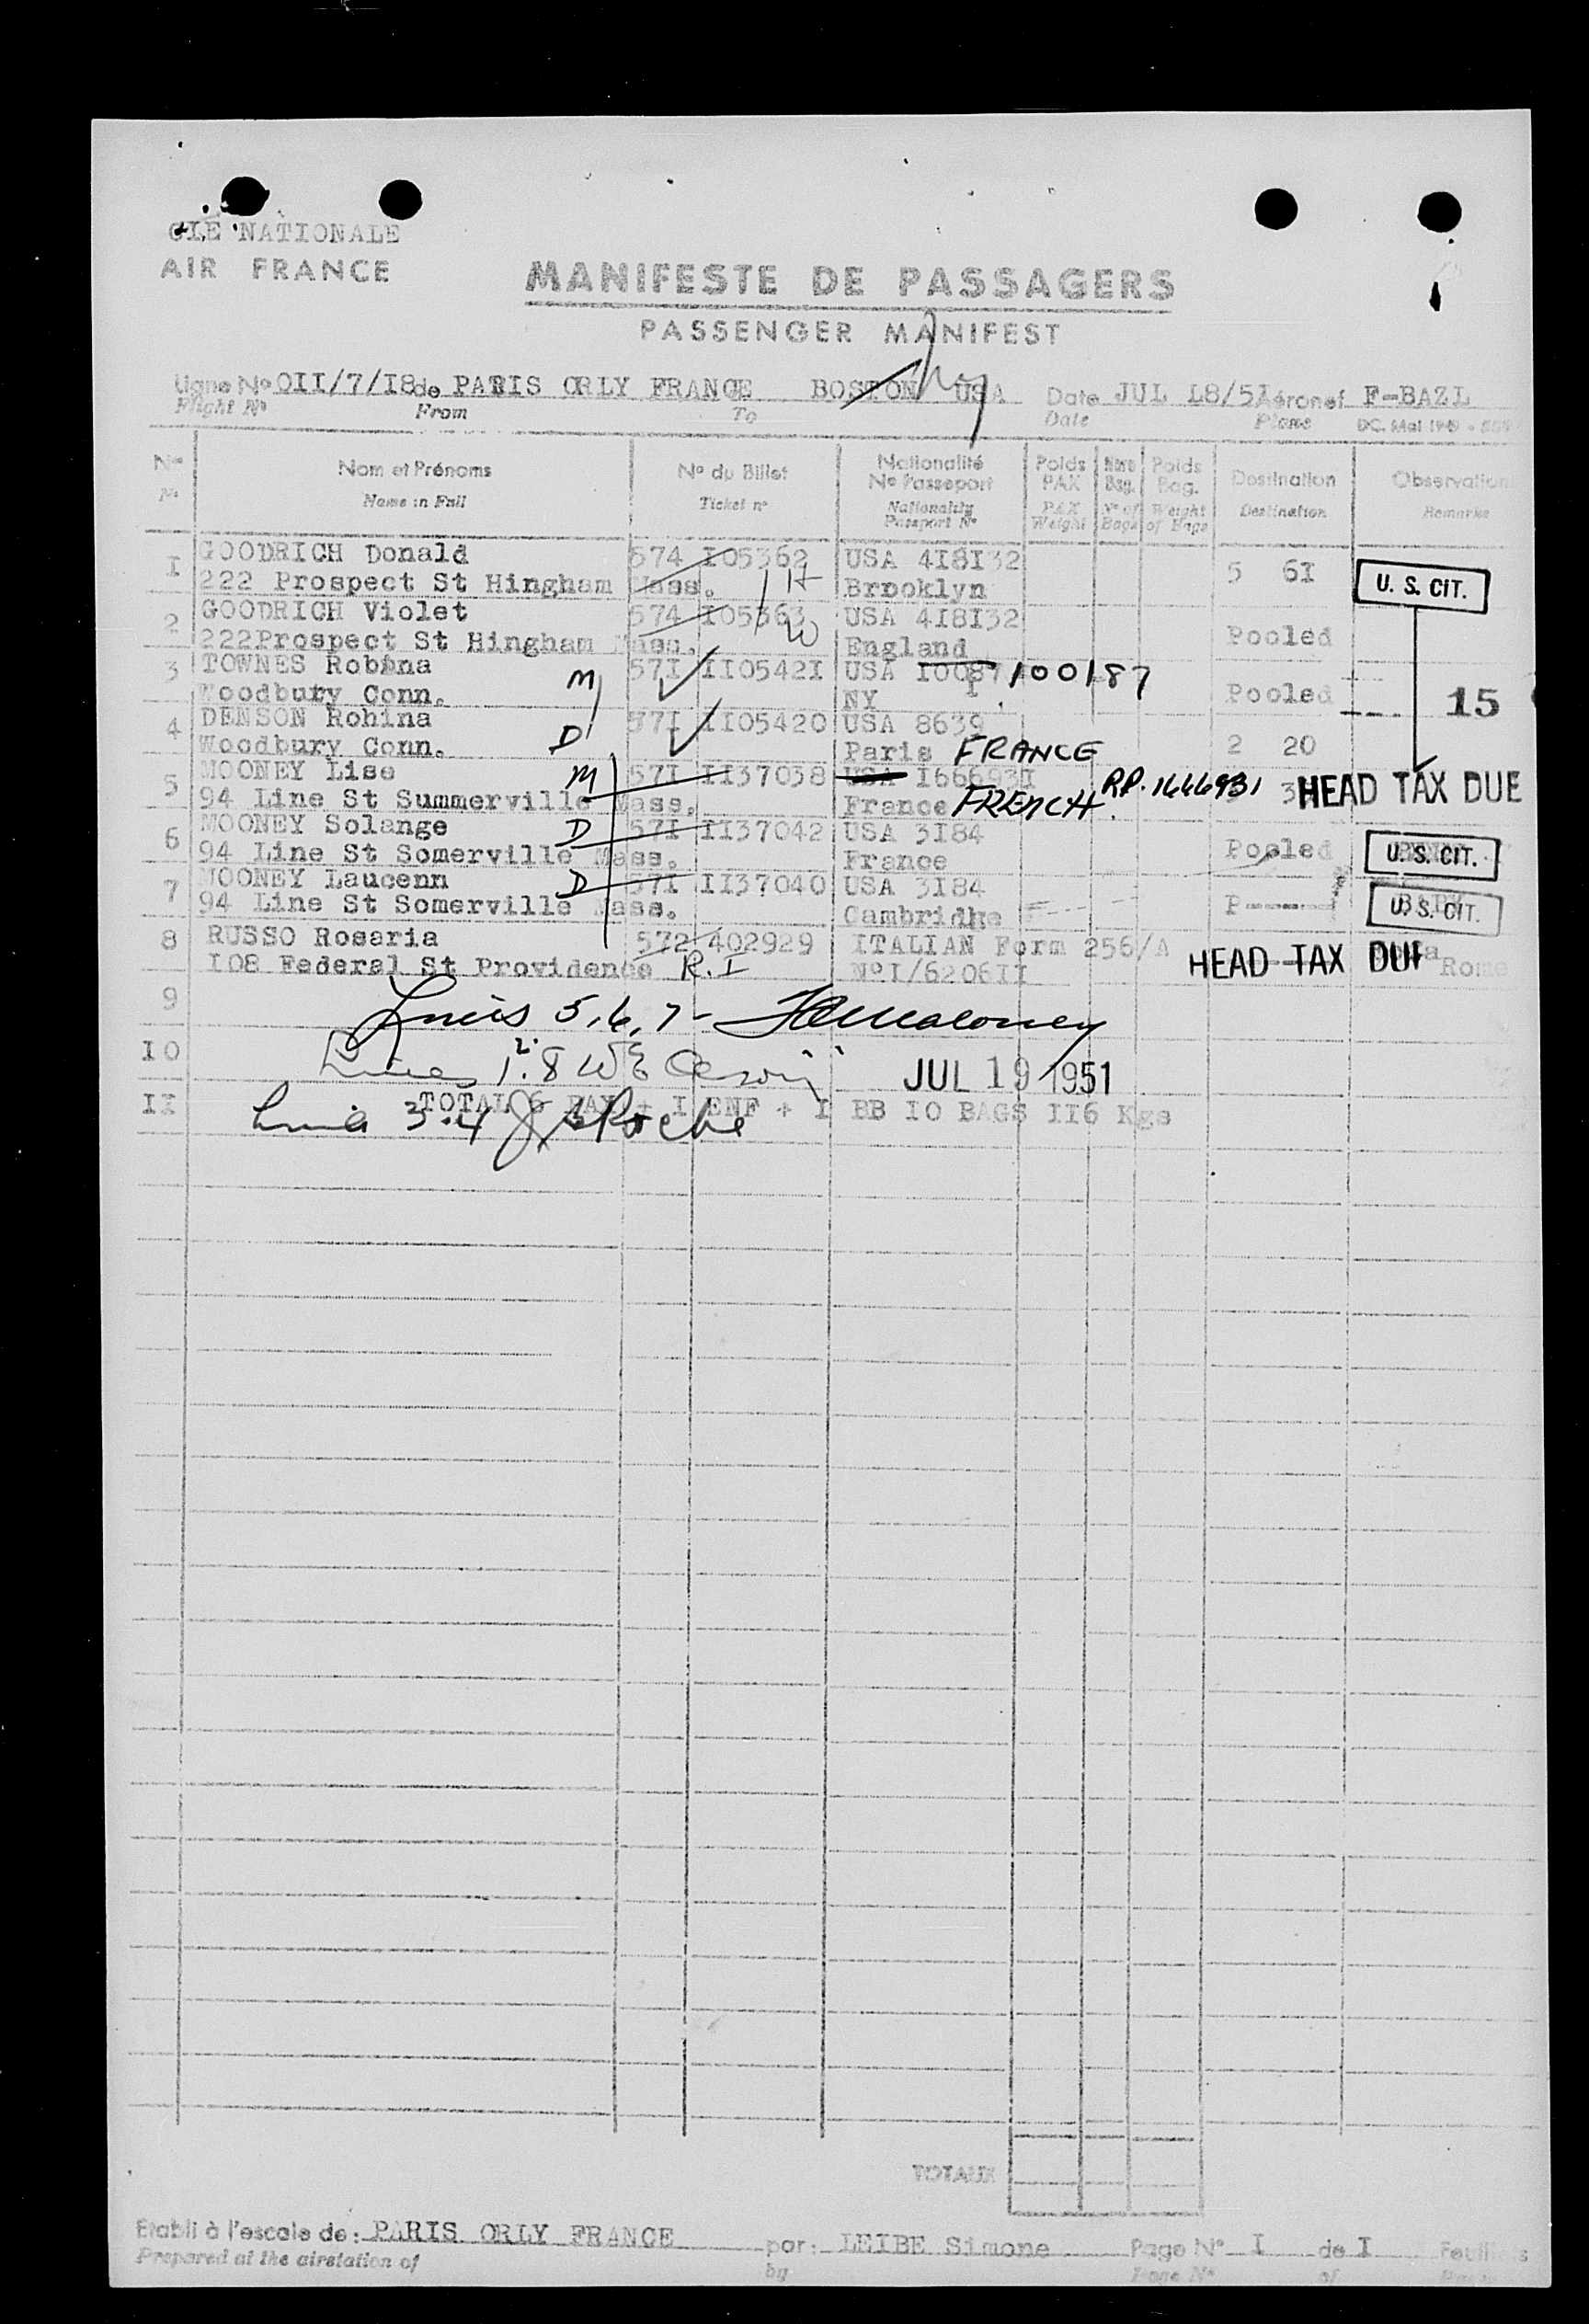 CIE NATIONALE
AIR FRANCE
MANIFESTE DE PASSAGERS
PASSENGER MANIFEST
Ligne No OII/7/I8 de PARIS ORLY FRANCE BOSTON NY USA Date JUL I8/5I Aéronef F-BAZL
Flight No From To Date Plane DC. Mai 1949
Nos Nom et Prénoms No du Billet Nationalité No Passeport Poids PAX Nbre Bag. Poids Bag. Destination Observation
No Name in Full Ticket no Nationality Passport No PAX Weight No of Bags Weight of Bags Destination Remarks
I GOODRICH Donald 574 I05362 USA 4I8I32 5 6I U. S. CIT.
222 Prospect St Hingham Mass. H Brooklyn
2 GOODRICH Violet 574 I05363 USA 4I8I32 Pooled
222Prospect St Hingham Mass. W England
3 TOWNES Robina M 57I II0542I USA 100187 Pooled 15
Woodbury Conn. NY
4 DENSON Robina D 57I II05420 USA 8639 2 20
Woodbury Conn. Paris FRANCE
5 MOONEY Lise M 57I II37038 USA I66693I RP. 1666931 3 HEAD TAX DUE
94 Line St Summerville Mass. France FRENCH.
6 MOONEY Solange D 57I II37042 USA 3I84 Pooled U. S. CIT.
94 Line St Somerville Mass. France
7 MOONEY Laucenn D 57I II37040 USA 3I84 P---- U. S. CIT.
94 Line St Somerville Mass. Cambridhe
8 RUSSO Rosaria 572 402929 ITALIAN Form 256/A HEAD TAX DUE
I08 Federal St Providence R.I NoI/6206II Rome
9 Lines 5,6,7- Maloney
I0 Lines 1.2.8 JUL 19 1951
II TOTAL 6 PAX + I ENF + I BB I0 BAGS II6 Kgs
Lines 3.4 Roche
TOTAUX
Etabli à l'escale de: PARIS ORLY FRANCE par: LEIBE Simone Page No I de I Feuillets
Prepared at the airstation of by Page No of